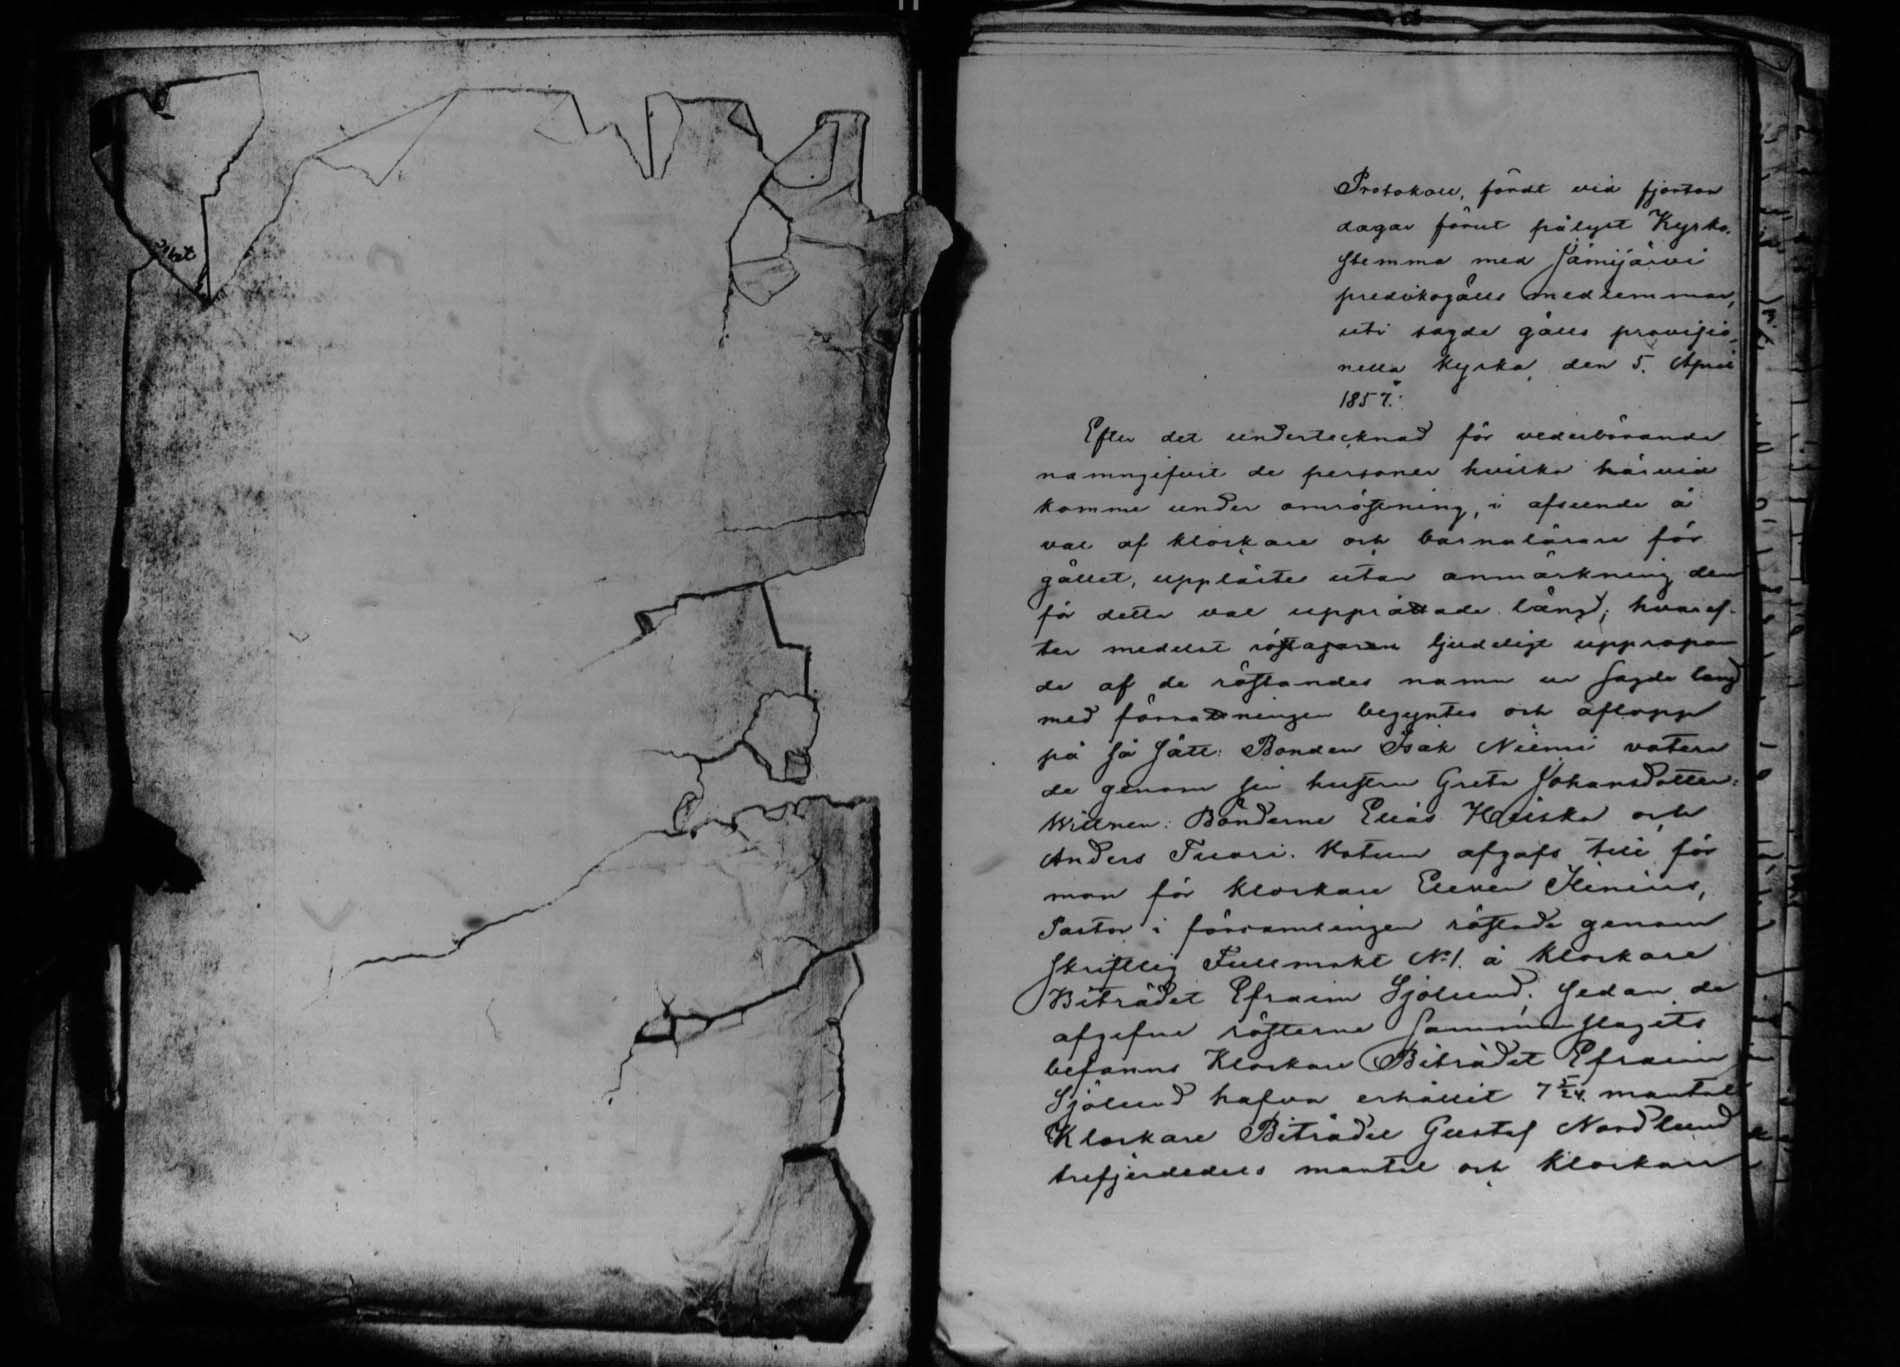 Protokoll, fördt vid fjorton
dagar förut pålyst Kyrko-
stemma med Jämijärvi
predikogälls medlemmar,
uti sagde gälls provisio-
nella kyrka, den 5. April
1857.
Efter det undertecknad för vederbörande
namngifvit de personer hvilka härvid
komme under omröstning, i afseende å
val af klockare och barnalärare för
gället, upplästes utan anmärkning den
för detta val upprättade längd; hvaref-
ter medelst röstägaren ljudeligt uppropan-
de af de röstandes namn ur sagde längd
med förrättningen begyntes och aflopp
på så sätt: Bonden Isak Niemi votera
de genom sin hustru Greta Johansdotter:
Wittnen: Bönderne Elias Heiska och
Anders Tuori. Votum afgafs till för
mon för klockare Eleven Ilenius,
Pastor i församlingen röstade genom
skriftlig Fullmakt No 1. å klockare
Biträdet Efraim Sjölund. Sedan de
afgifne rösterne sammanslagits
befanns Klockare Biträdet Efraim
Sjölund hafva erhållit 7 5/24 mantal
Klockare Biträdet Gustaf Nordlund
trefjerdedels mantal och klockare